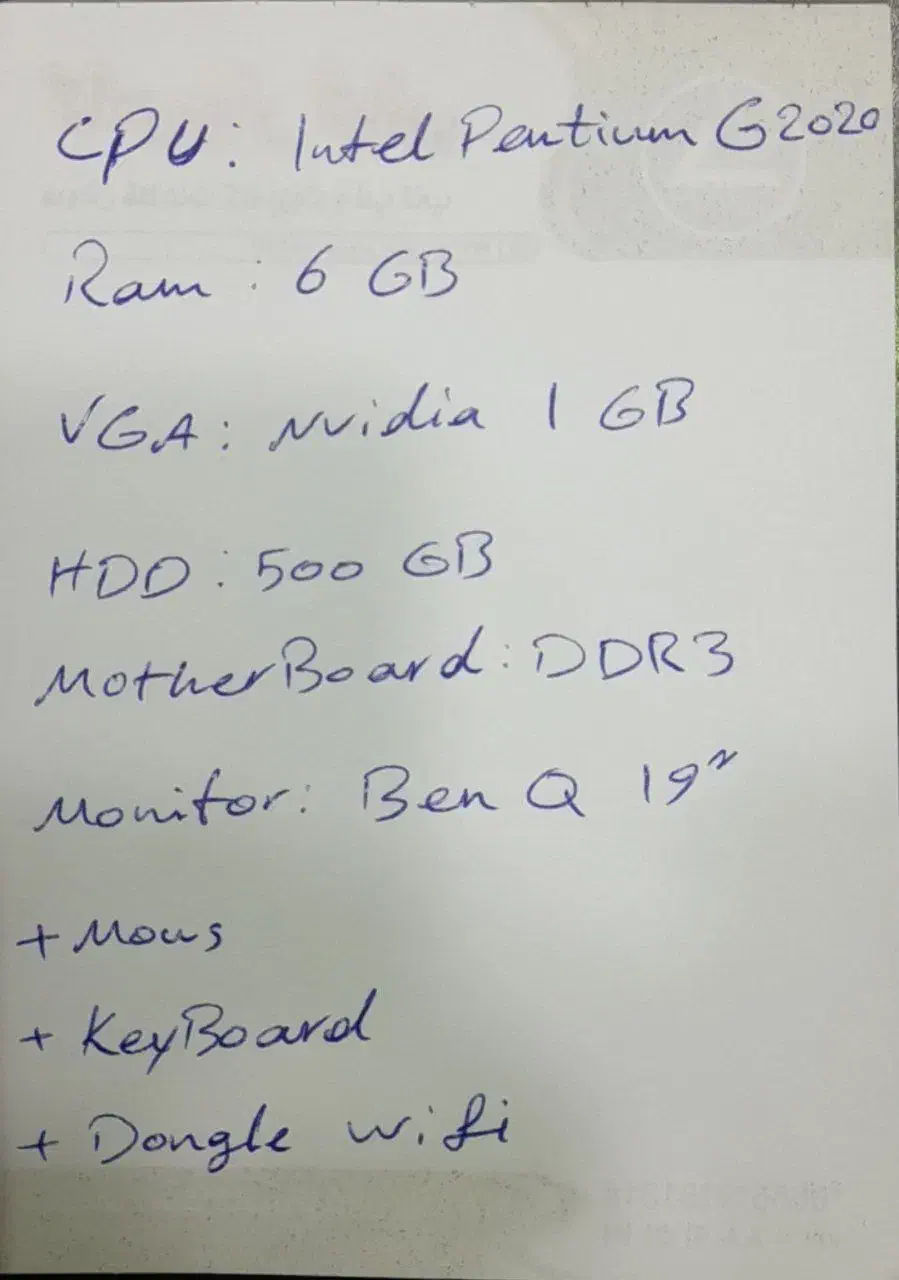 CPU: Intel Pentium G2020
Ram: 6 GB
VGA: Nvidia 1 GB
HDD: 500 GB
MotherBoard: DDR3
Monitor: BenQ 19"
+ Mous
+ KeyBoard
+ Dongle wifi